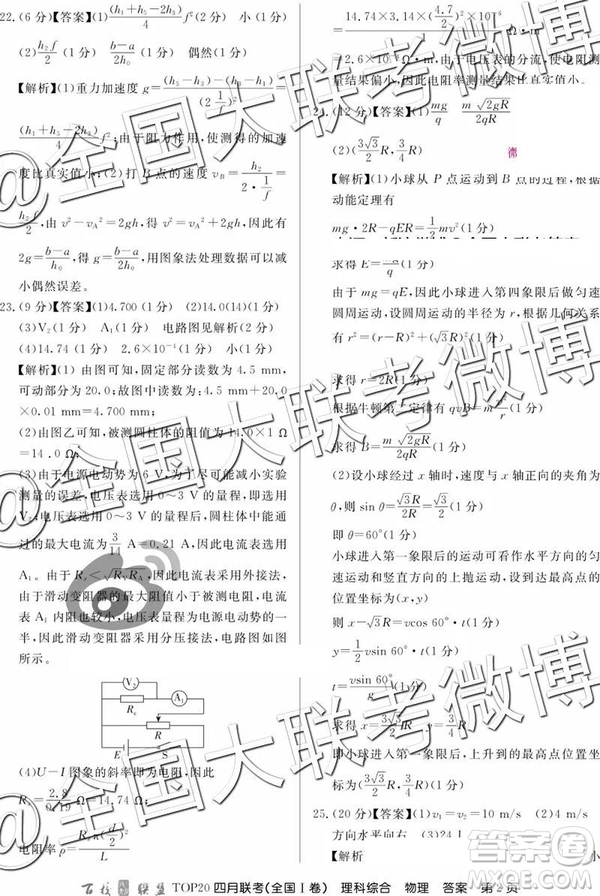 22.(6分)【答案】(1)(h₁+h₅-2h₃)/4 f²(2分) 小(1分)
(2)h₂f/2(1分) (b-a)/2h₀(1分) 偶然(1分)
【解析】(1)重力加速度g=(h₅-h₃)-(h₃-h₁)/(2 1/f)²=
(h₁+h₅-2h₃)/4 f²;由于阻力作用,使测得的加速
度比真实值小;(2)打B点的速度v_B=h₂/(2·1/f)=
h₂f/2,由v²-v_A²=2gh,得v²=v_A²+2gh,得
2g=(b-a)/h₀,得g=(b-a)/2h₀,用图象法处理数据可以减
小偶然误差。
23.(9分)【答案】(1)4.700(1分) (2)14.0(14)(1分)
(3)V₂(1分) A₁(1分) 电路图见解析(2分)
(4)14.74(1分) 2.6×10⁻⁴(1分) 小(1分)
【解析】(1)由图可知,固定部分读数为4.5 mm,
可动部分为20.0;故图中读数为:4.5 mm+20.0
×0.01 mm=4.700 mm;
(2)由图乙可知,被测圆柱体的阻值为14.0×1 Ω
=14.0 Ω;
(3)由于电源电动势为6 V,为了尽可能减小实验
测量的误差,电压表选用0~3 V的量程,即选用
V₂;电压表选用0~3 V的量程后,圆柱体中能通
过的最大电流为3/14 A=0.21 A,因此电流表选用
A₁。由于R_x<√(R_V R_A),因此电流表采用外接法,
由于滑动变阻器的最大阻值小于被测电阻,电流
表A₁内阻也较小,电压表V₂量程为电源电动势的一
半,因此滑动变阻器采用分压接法,电路图如图
所示。
V₂
A₁
R_x
R
E S
(4)U-I图象的斜率即为电阻,因此
R_x=2.8/0.19 Ω=14.74 Ω,
电阻率ρ=R_xπ(d/2)²
14.74×3.14×(4.7/2)²×10⁻⁶
=2.6×10⁻⁴ Ω·m,由于电压表的分流,使电阻测
量结果偏小,因此电阻率测量结果比真实值小。
24.(12分)【答案】(1)mg/q m√(2gR)/2qR
(2)(3√3/2 R,3/4 R)
【解析】(1)小球从P点运动到B点的过程,根据
动能定理有
mg·2R-qER=1/2 mv²(1分)
求得E=mg/q(1分)
由于mg=qE,因此小球进入第四象限后做匀速
圆周运动,设圆周运动的半径为r,根据几何关系
有
求得r=2R(1分)
根据牛顿第二定律有qvB=m v²/r(1分)
求得B=m√(2gR)/2qR(1分)
(2)设小球经过x轴时,速度与x轴正向的夹角为
θ,则sin θ=√3R/2R=√3/2(1分)
即θ=60°(1分)
小球进入第一象限后的运动可看作水平方向的匀
速运动和竖直方向的上抛运动,设到达最高点的
位置坐标为(x,y)
则x-√3R=vcos 60°·t(1分)
y=1/2 vsin 60°·t(1分)
求得x=3√3/2 R,y=3/4 R(1分)
即小球进入第一象限后,上升到的最高点的位置坐
标为(3√3/2 R,3/4 R)(1分)
25.(20分)【答案】(1)v₁=v₂=10 m/s (2)4 m/s
方向水平向右 (3)24
【解析】
小
TOP20四月联考(全国Ⅰ卷) 理科综合 物理 答案 第2页
@全国大联考微博
@全国大联考微博
@全国大联考微博